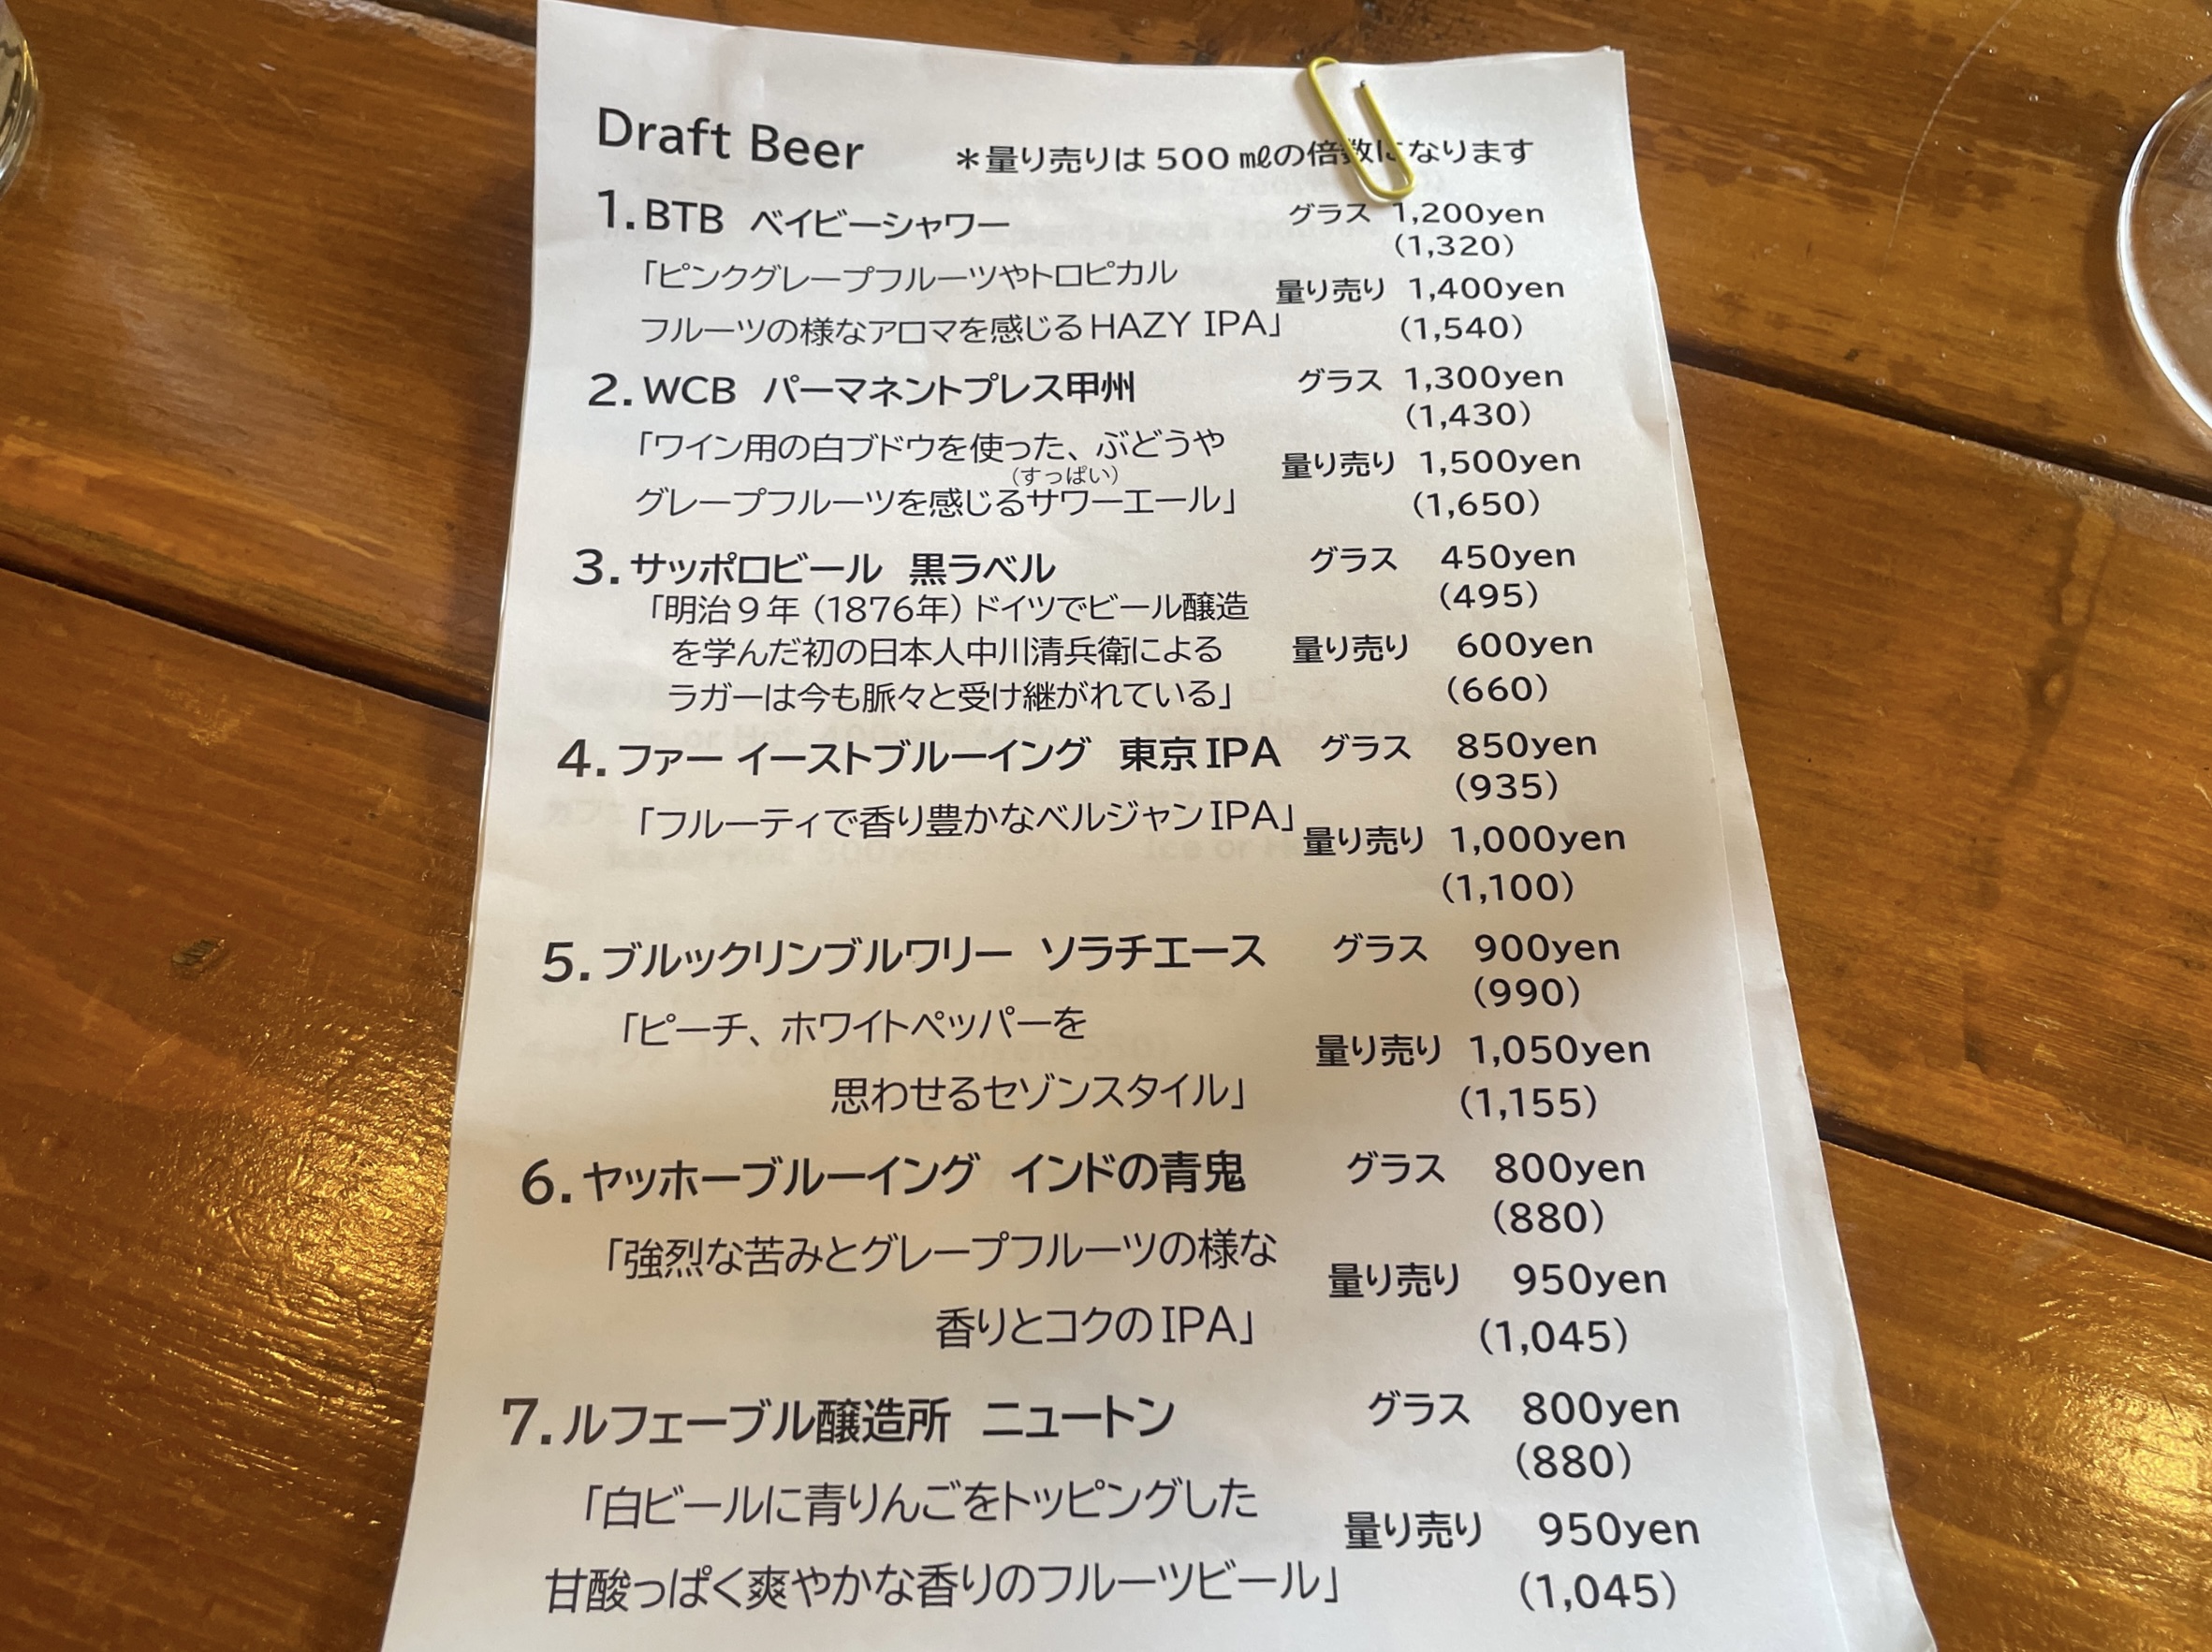 Draft Beer ＊量り売りは500㎖の倍数になります
1.BTB ベイビーシャワー グラス 1,200yen
(1,320)
「ピンクグレープフルーツやトロピカル 量り売り 1,400yen
フルーツの様なアロマを感じるHAZY IPA」 (1,540)
2.WCB パーマネントプレス甲州 グラス 1,300yen
(1,430)
「ワイン用の白ブドウを使った、ぶどうや 量り売り 1,500yen
(すっぱい)
グレープフルーツを感じるサワーエール」 (1,650)
3.サッポロビール 黒ラベル グラス 450yen
「明治9年(1876年)ドイツでビール醸造 (495)
を学んだ初の日本人中川清兵衛による 量り売り 600yen
ラガーは今も脈々と受け継がれている」 (660)
4.ファー イーストブルーイング 東京IPA グラス 850yen
(935)
「フルーティで香り豊かなベルジャンIPA」 量り売り 1,000yen
(1,100)
5.ブルックリンブルワリー ソラチエース グラス 900yen
(990)
「ピーチ、ホワイトペッパーを 量り売り 1,050yen
思わせるセゾンスタイル」 (1,155)
6.ヤッホーブルーイング インドの青鬼 グラス 800yen
(880)
「強烈な苦みとグレープフルーツの様な 量り売り 950yen
香りとコクのIPA」 (1,045)
7.ルフェーブル醸造所 ニュートン グラス 800yen
(880)
「白ビールに青りんごをトッピングした 量り売り 950yen
甘酸っぱく爽やかな香りのフルーツビール」 (1,045)